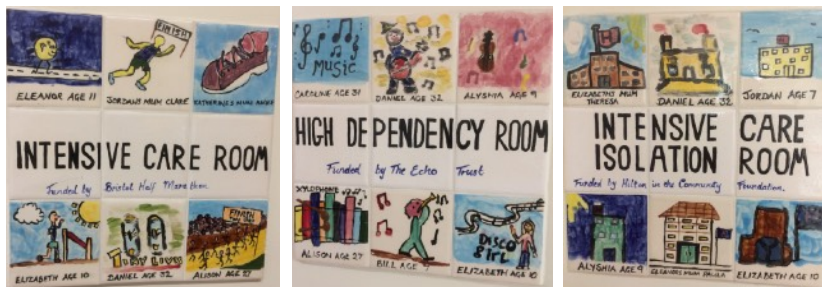 FINISH
ELEANOR AGE 11
JORDAN'S MUM CLARE
CATHERINE'S MUM ANGIE
INTENSIVE CARE ROOM
Funded by Bristol Half Marathon
FINISH
ELIZABETH AGE 10
DANIEL AGE 32
ALISON AGE 27
MUSIC
CAROLINE AGE 31
DANIEL AGE 32
ALYSHIA AGE 9
HIGH DEPENDENCY ROOM
Funded by The Echo Trust
XYLOPHONE
DISCO GIRL
ALISON AGE 27
BILL AGE
ELIZABETH AGE 10
H
ELIZABETH'S MUM THERESA
DANIEL AGE 32
JORDAN AGE 7
INTENSIVE CARE
ISOLATION ROOM
Funded by Hilton in the Community Foundation.
ALYSHIA AGE 9
ELEANORS MUM PAULA
ELIZABETH AGE 10